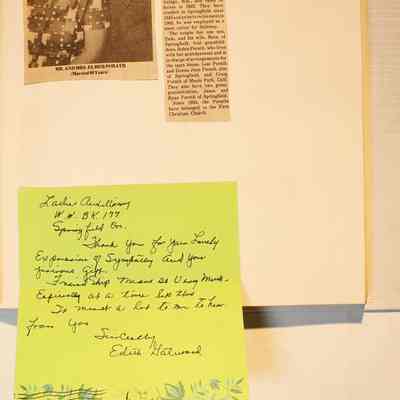 MR. AND MRS. ELMER PORATH
(Married 60 Years)
in 1923. They have
resided in Springfield since
1946. He was employed as
The couple has one son,
Dale, and his wife, Rena, of
Springfield; four grandchil-
dren, Robin Porath, who lives
with her grandparents and is
in charge of arrangements for
the open house, Lori Porath
and Donna Jean Porath, also
of Springfield, and Craig
Porath of Menlo Park, Calif.
They also have two great-
grandchildren, Jason and
Ryan Porath of Springfield.
Since 1946, the Poraths
have belonged to the First
Christian Church.
Ladies Auxiliary
W.W. BK 177
Springfield Or.
Thank You for Your Lovely
Expression of Sympathy And Your
gracious Gift.
Friendship Means So Very Much.
Especially at a time like this
It meant a lot to me to hear
from You
Sincerely
Edith Garwood